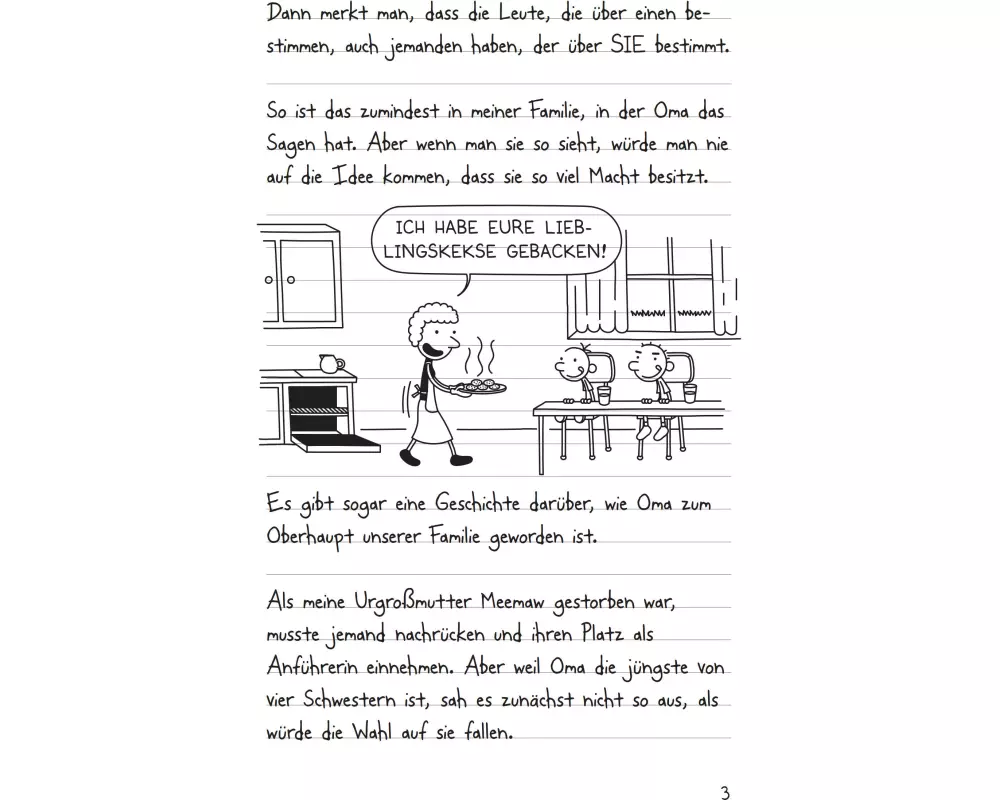 Dann merkt man, dass die Leute, die über einen be-
stimmen, auch jemanden haben, der über SIE bestimmt.
So ist das zumindest in meiner Familie, in der Oma das
Sagen hat. Aber wenn man sie so sieht, würde man nie
auf die Idee kommen, dass sie so viel Macht besitzt.
ICH HABE EURE LIEB-
LINGSKEKSE GEBACKEN!
Es gibt sogar eine Geschichte darüber, wie Oma zum
Oberhaupt unserer Familie geworden ist.
Als meine Urgroßmutter Meemaw gestorben war,
musste jemand nachrücken und ihren Platz als
Anführerin einnehmen. Aber weil Oma die jüngste von
vier Schwestern ist, sah es zunächst nicht so aus, als
würde die Wahl auf sie fallen.
3